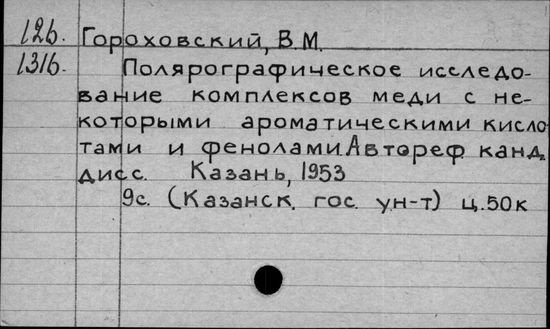 12б. Гороховский, В.М.
1316. Полярографическое исследо-
вание комплексов меди с не-
которыми ароматическими кисло-
тами и фенолами Автореф. канд.
дисс. Казань, 1953
9с. (Казанск. гос. ун-т) ц.50к